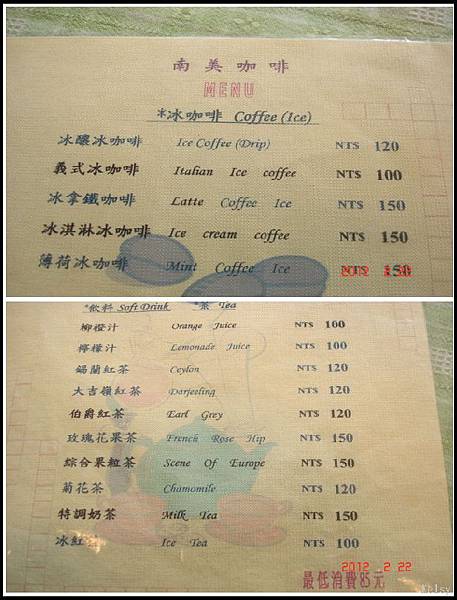 南美咖啡
MENU
*冰咖啡 Coffee (Ice)
冰釀冰咖啡 Ice Coffee (Drip) NT$ 120
義式冰咖啡 Italian Ice coffee NT$ 100
冰拿鐵咖啡 Latte Coffee Ice NT$ 150
冰淇淋冰咖啡 Ice cream coffee NT$ 150
薄荷冰咖啡 Mint Coffee Ice NT$ 150
*飲料 Soft Drink *茶 Tea
柳橙汁 Orange Juice NT$ 100
檸檬汁 Lemonade Juice NT$ 100
錫蘭紅茶 Ceylon NT$ 120
大吉嶺紅茶 Darjeeling NT$ 120
伯爵紅茶 Earl Grey NT$ 120
玫瑰花果茶 French Rose Hip NT$ 150
綜合果粒茶 Scene Of Europe NT$ 150
菊花茶 Chamomile NT$ 120
特調奶茶 Milk Tea NT$ 150
冰紅 Ice Tea NT$ 100
2012 2 22
最低消費85元